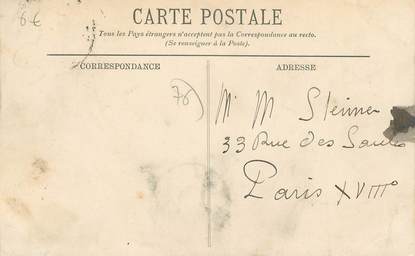 6€
CARTE POSTALE
Tous les Pays étrangers n'acceptent pas la Correspondance au recto.
(Se renseigner à la Poste).
CORRESPONDANCE
ADRESSE
78
M. M Steiner
33 Rue des Saules
Paris XVIIIº